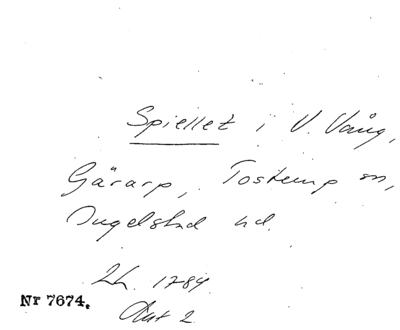 Spiellet i V. Vång,
Gärarp, Tosterup sn,
Ingelstad hd.
Lh. 1789
Akt 2
Nr 7674.